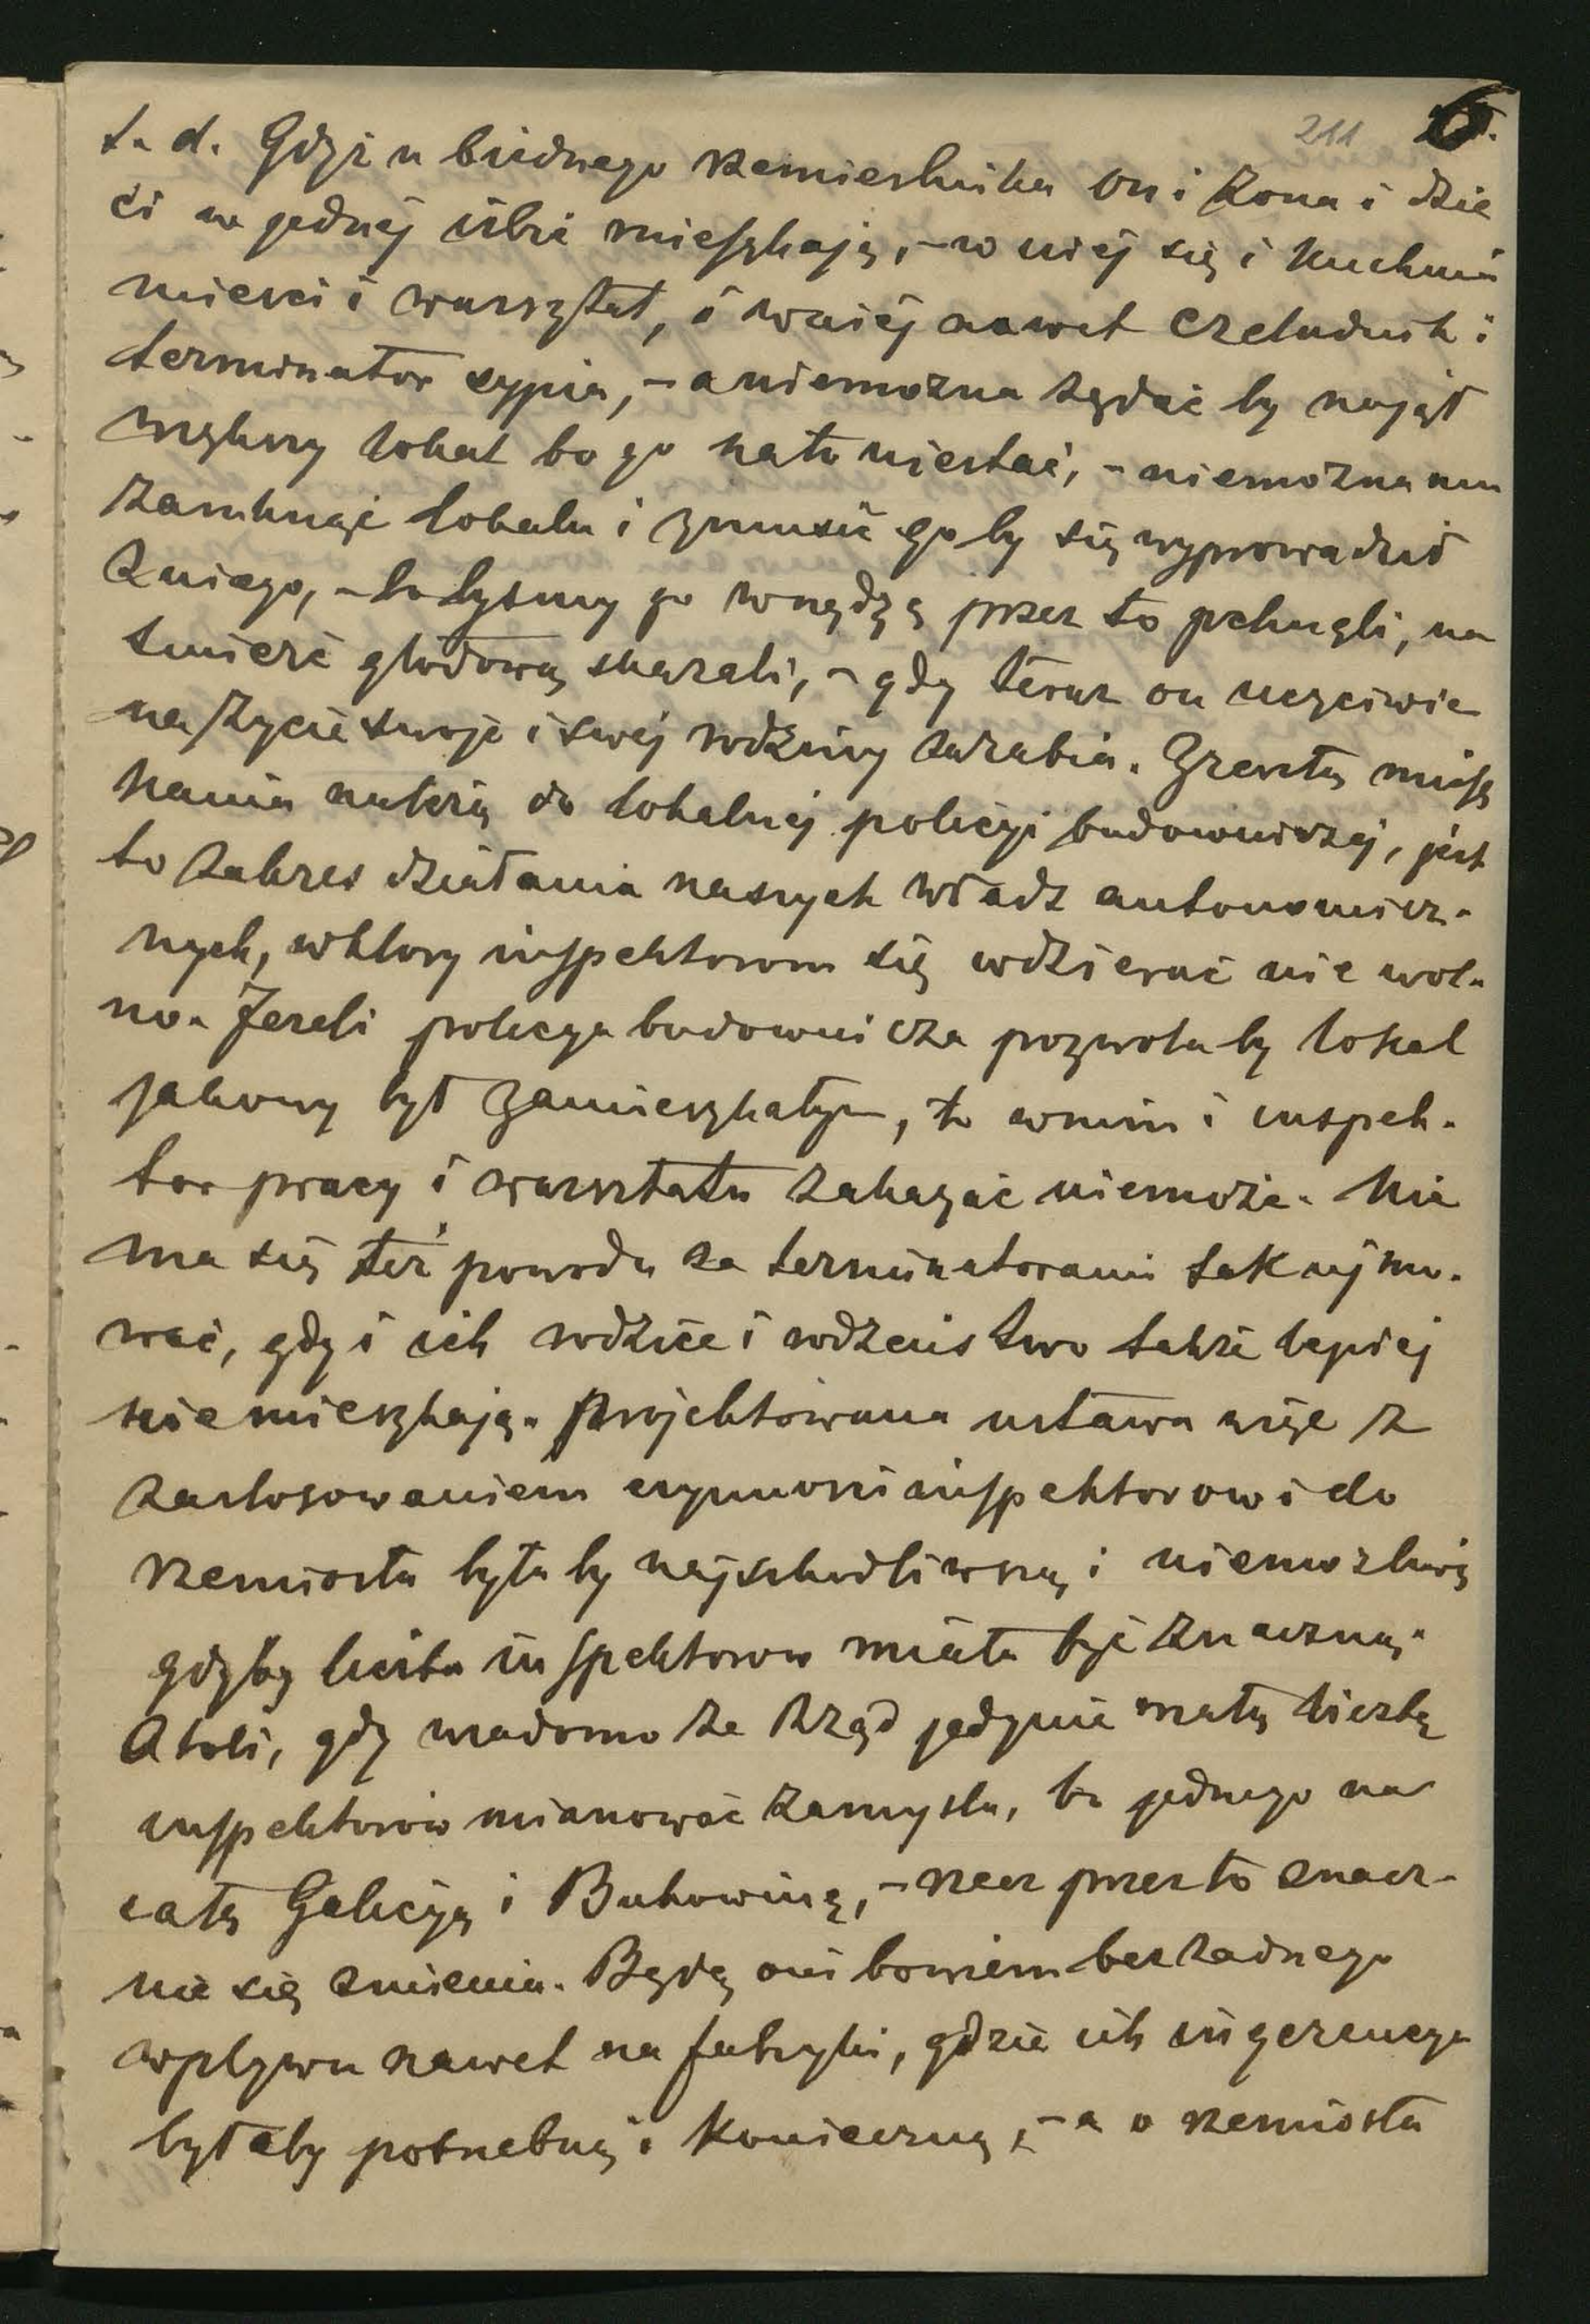 211 6.
t. d. Gdyż u biednego rzemieślnika on i żona i dzie
ci w jednéj izbie mieszkają, – w niéj się i kuchnia
mieści i warsztat, i w niéj nawet czeladnik i
terminator sypia, – a niemożna żądać by najął
większy lokal bo go nato niestać, – niemożna mu
zamknąć lokalu i zmusić go by się wyprowadził
z niego, – bo byśmy go w nędzę przez to pchnęli, na
śmierć głodową skazali, – gdy teraz on uczciwie
na życie swoje i swéj rodziny zarabia. Zresztą miesz
kania należą do lokalnéj policyi budowniczéj, jest
to zakres działania naszych władz autonomicz-
nych, w który inspektorom się wdzierać nie wol-
no. Jeżeli policya budownicza pozwoliła by lokal
jakowy był zamieszkałym, to w nim i inspek-
tor pracy i warsztatu zakazać niemoże. Nie
ma się też powodu za terminatorami tak ujmo-
wać, gdy i ich rodzice i rodzeństwo także lepiéj
nie mieszkają. Projektowana ustawa więc z
zastosowaniem inspektorów i do
rzemiosła była by najszkodliwszą i niemożliwą
gdyby liczba inspektorów miała być znaczną.
Atoli, gdy wiadomo że rząd jedynie małą liczbę
inspektorów mianować zamyśla, bo jednego na
całą Galicyę i Bukowinę, – rzecz przez to znacz-
nie się zmienia. Będą oni bowiem bez żadnego
wpływu nawet na fabryki, gdzie ich ingerencya
byłaby potrzebną i konieczną, – a o rzemiosła